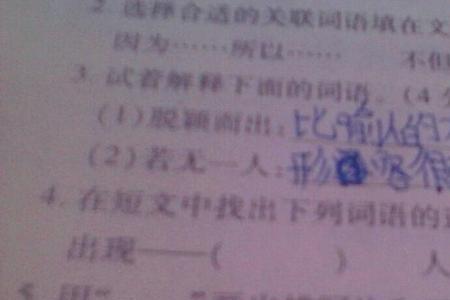 2. 选择合适的关联词语填在文
因为……所以…… 不但
3. 试着解释下面的词语。(4分
(1)脱颖而出:比喻人的
(2)若无一人:形
4. 在短文中找出下列词语的
出现——( ) 人
5. 用“